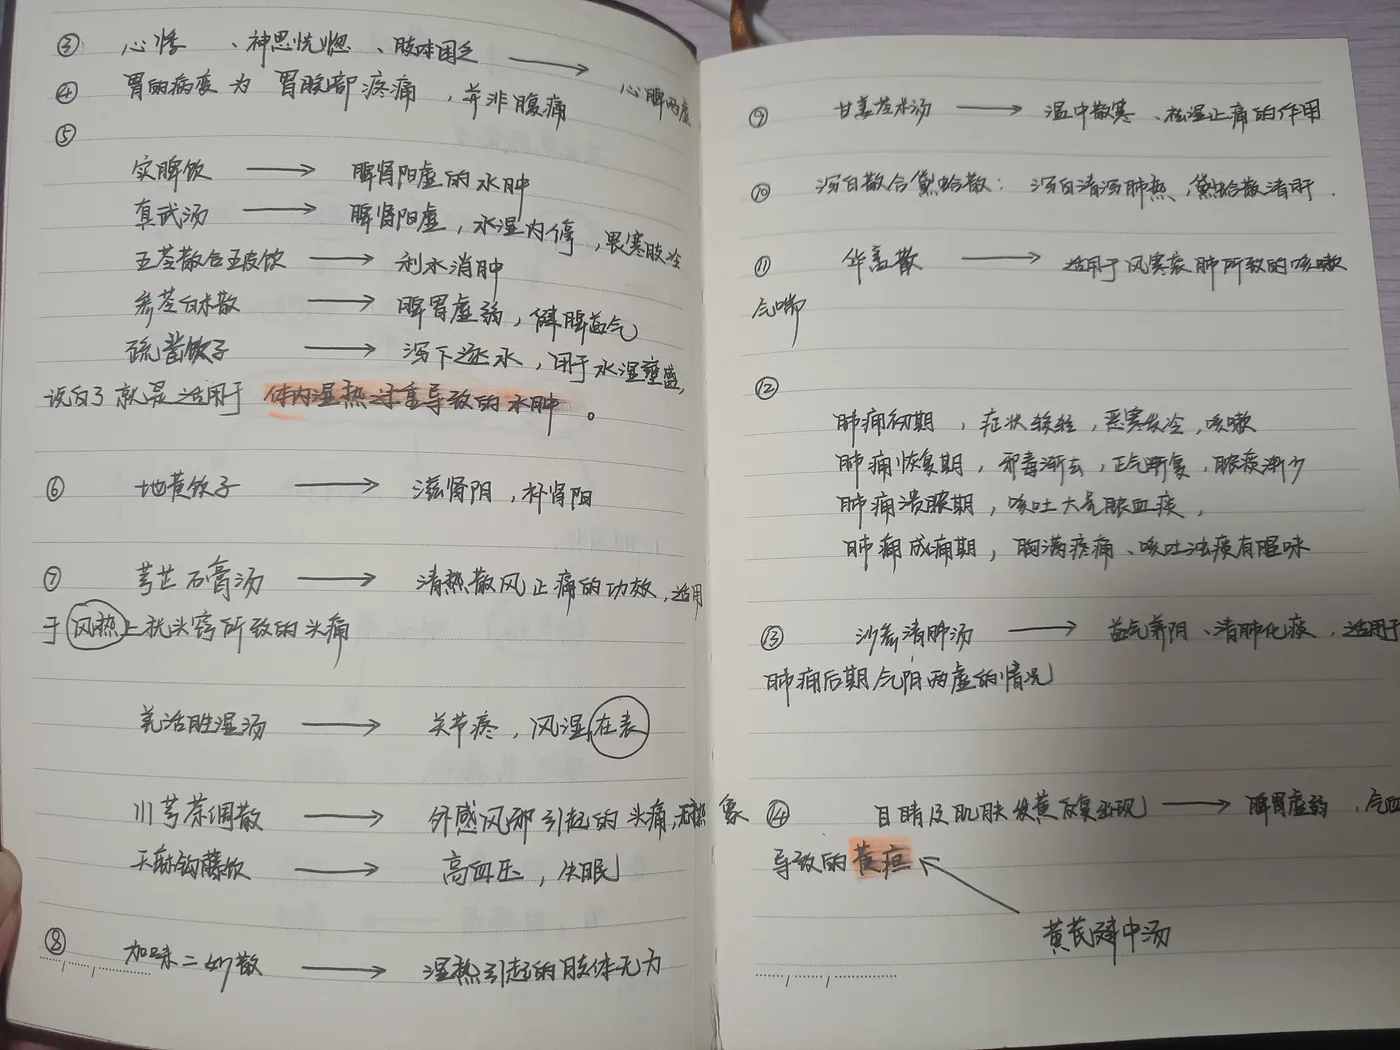 ③ 心悸、神思恍惚、肢体困乏 → 心脾两虚
④ 胃的病变为胃脘部疼痛，并非腹痛
⑤
实脾饮 → 脾肾阳虚的水肿
真武汤 → 脾肾阳虚，水湿内停，畏寒肢冷
五苓散合五皮饮 → 利水消肿
参苓白术散 → 脾胃虚弱，健脾益气
疏凿饮子 → 泻下逐水，用于水湿壅盛，
说白了就是适用于体内湿热过重导致的水肿。
⑥ 地黄饮子 → 滋肾阴，补肾阳
⑦ 芎芷石膏汤 → 清热散风止痛的功效，适用
于风热上扰头窍所致的头痛
羌活胜湿汤 → 关节疼，风湿在表
川芎茶调散 → 外感风邪引起的头痛，无热象
天麻钩藤饮 → 高血压，失眠
⑧ 加味二妙散 → 湿热引起的肢体无力
⑨ 甘姜苓术汤 → 温中散寒、祛湿止痛的作用
⑩ 泻白散合黛蛤散：泻白清泻肺热，黛蛤散清肝.
⑪ 华盖散 → 适用于风寒袭肺所致的咳嗽
气喘
⑫
肺痈初期，症状较轻，恶寒发冷，咳嗽
肺痈恢复期，邪毒渐去，正气渐复，脓痰渐少
肺痈溃脓期，咳吐大量脓血痰，
肺痈成痈期，胸满疼痛、咳吐浊痰有腥味
⑬ 沙参清肺汤 → 益气养阴、清肺化痰，适用于
肺痈后期气阴两虚的情况
⑭ 目睛及肌肤发黄反复出现 → 脾胃虚弱、气血
导致的黄疸
黄芪建中汤